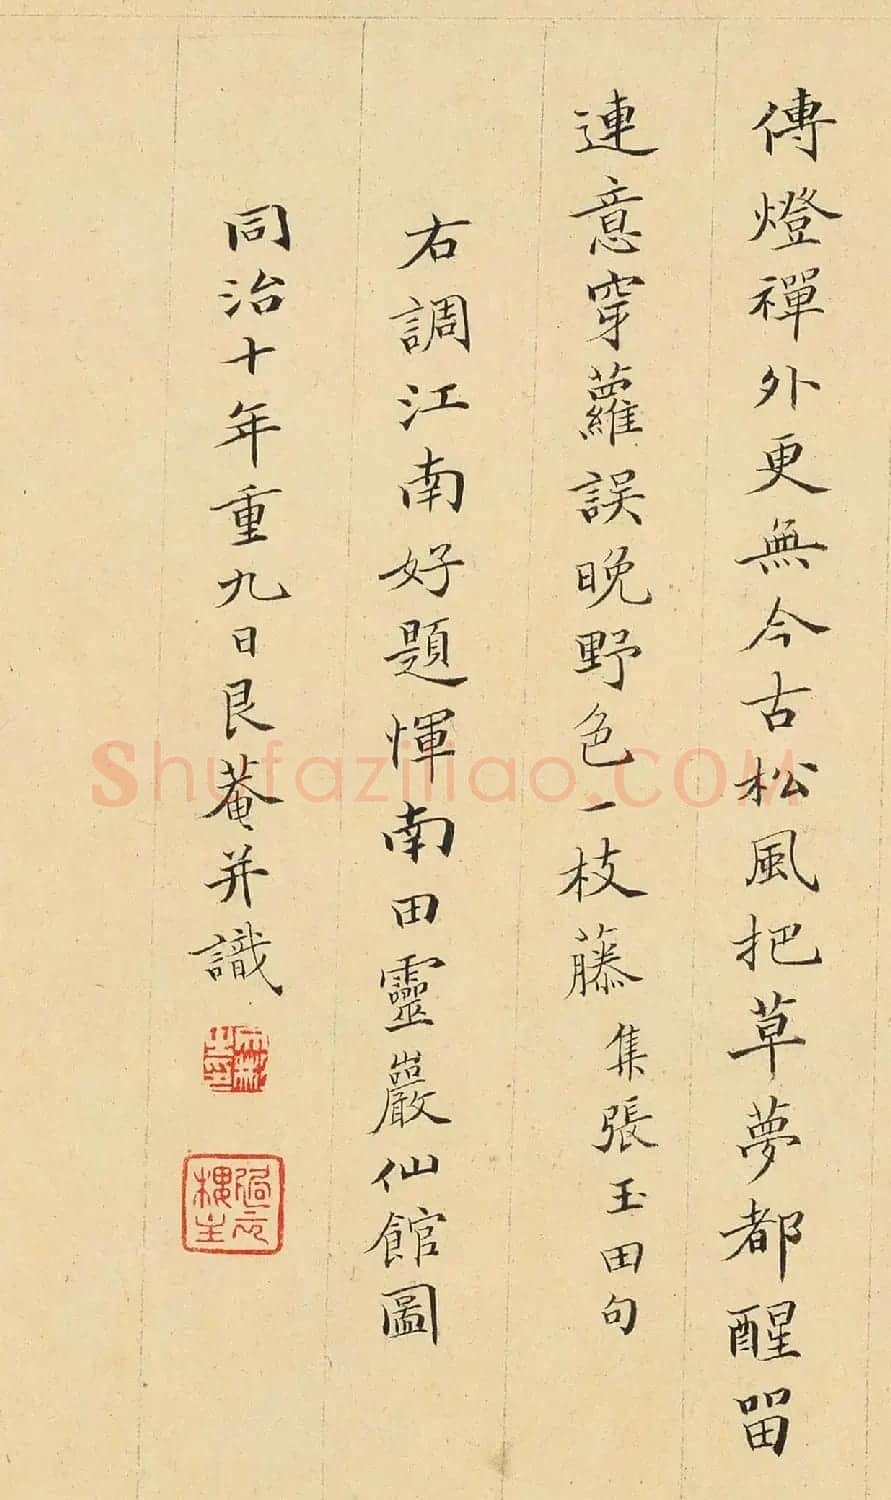 傳燈禪外更無今古松風把草夢都醒畱
連意穿蘿誤晚野色一枝藤集張玉田句
右調江南好題惲南田靈巖仙館圖
同治十年重九日艮菴并識
過雲樓主
Shufaziliao.COM